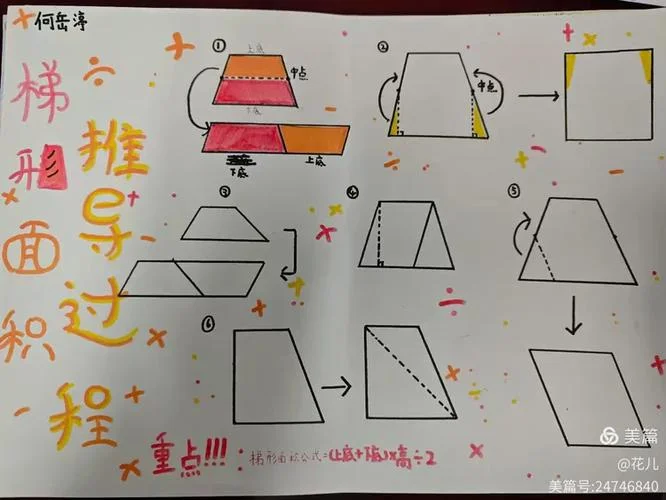 何岳淳
梯形面积
推导过程
①
上底
中点
下底
下底
上底
②
中点
③
④
⑤
⑥
重点!!!:
梯形面积公式=(上底+下底)×高÷2
美篇
@花儿
美篇号:24746840